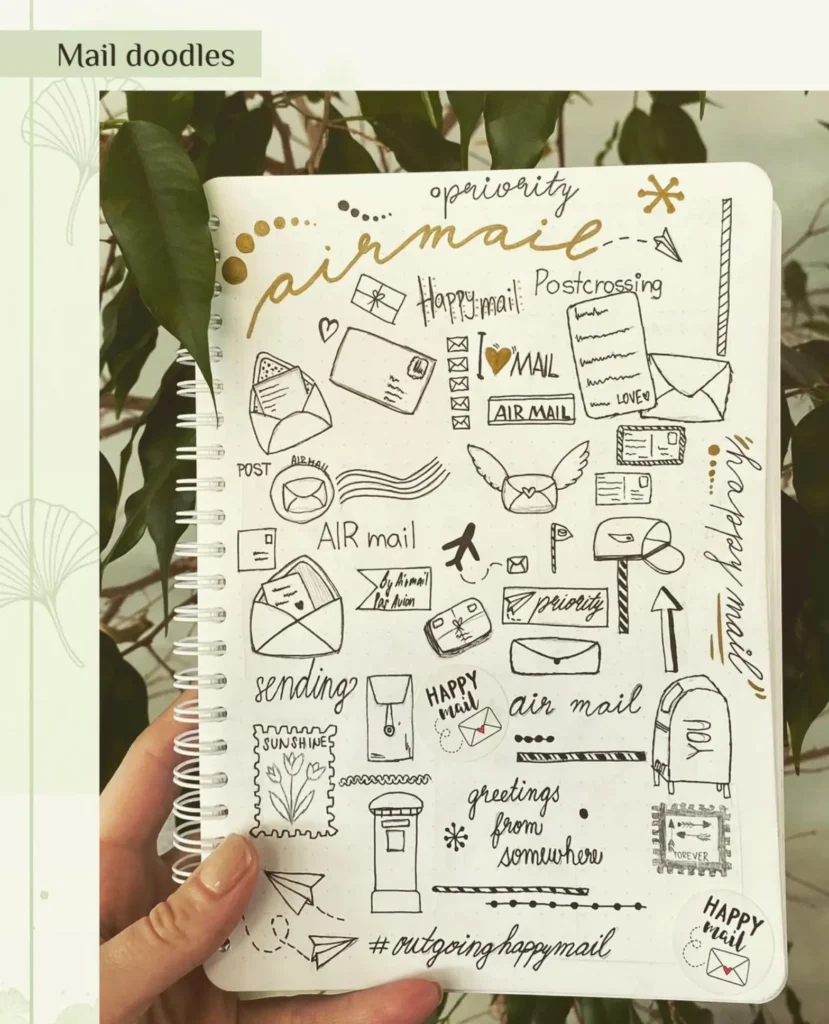 Mail doodles
priority
airmail
Happy mail
Postcrossing
I MAIL
LOVE
AIR MAIL
POST
AIRMAIL
AIR mail
by Airmail
Par Avion
priority
happy mail
sending
HAPPY
mail
air mail
YOU
SUNSHINE
greetings
from
somewhere
FOREVER
HAPPY
mail
#outgoinghappymail